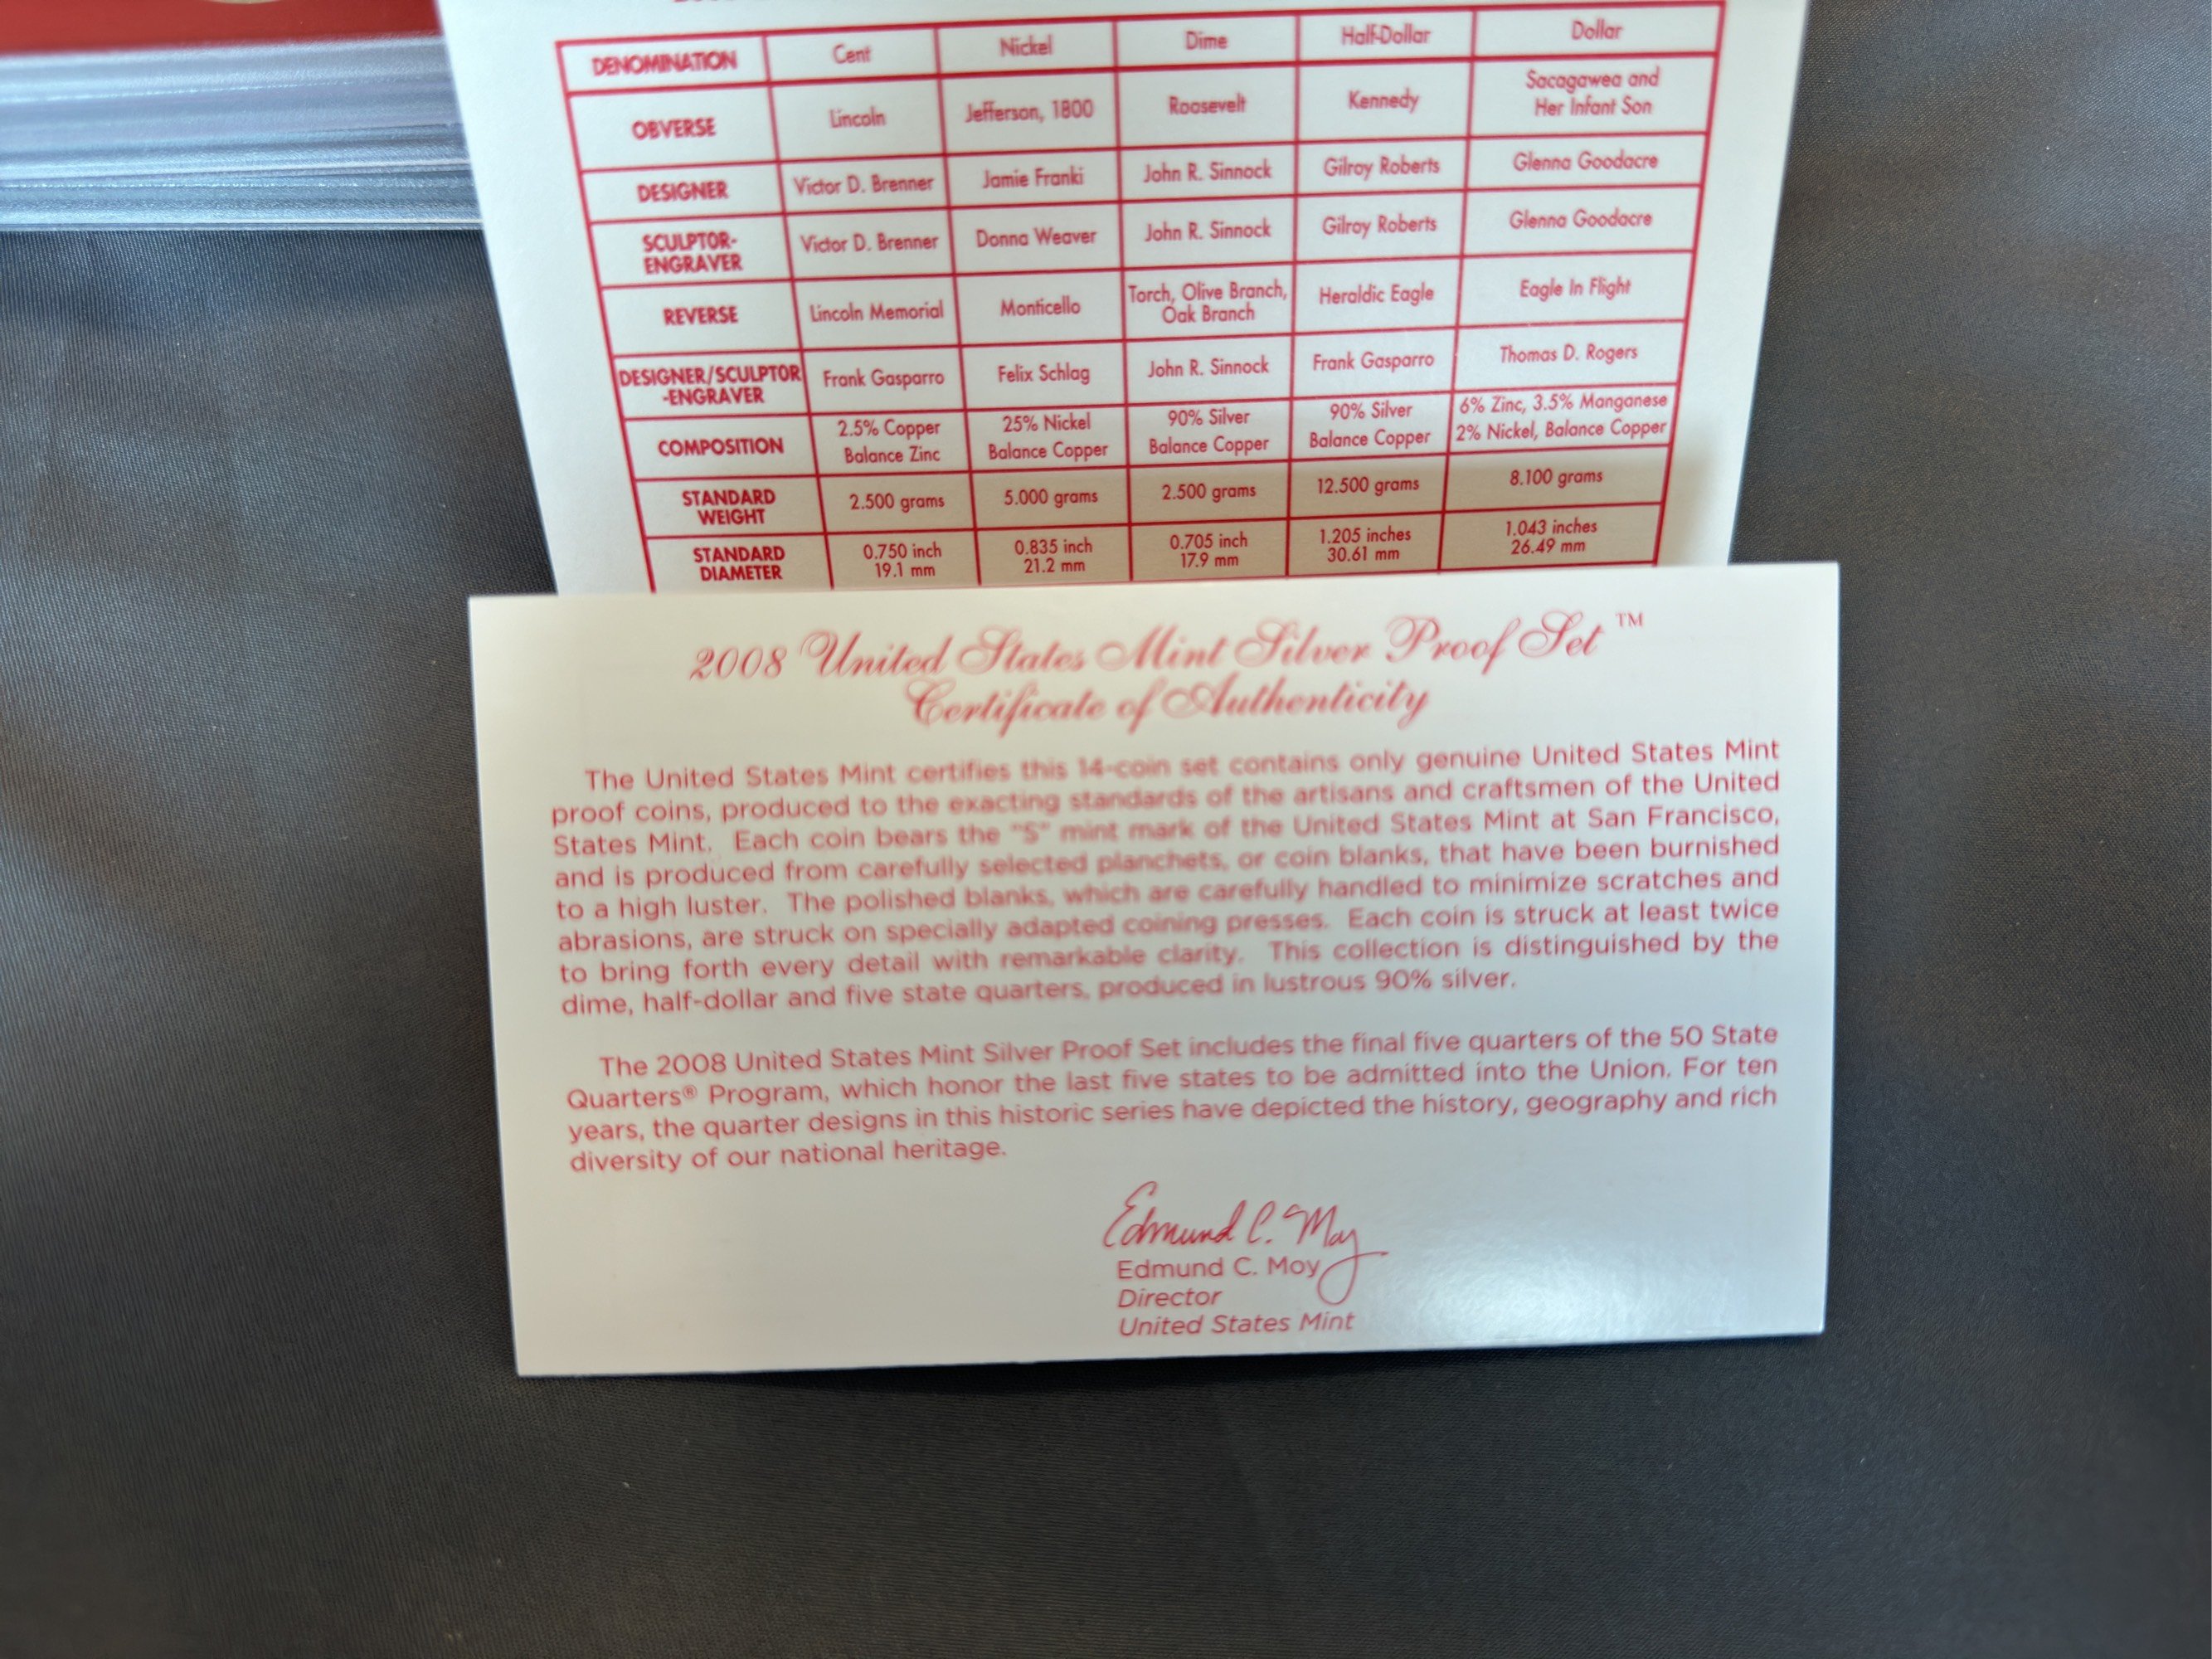 DENOMINATION Cent Nickel Dime Half-Dollar Dollar
OBVERSE Lincoln Jefferson, 1800 Roosevelt Kennedy Sacagawea and
Her Infant Son
DESIGNER Victor D. Brenner Jamie Franki John R. Sinnock Gilroy Roberts Glenna Goodacre
SCULPTOR-
ENGRAVER Victor D. Brenner Donna Weaver John R. Sinnock Gilroy Roberts Glenna Goodacre
REVERSE Lincoln Memorial Monticello Torch, Olive Branch,
Oak Branch Heraldic Eagle Eagle In Flight
DESIGNER/SCULPTOR
-ENGRAVER Frank Gasparro Felix Schlag John R. Sinnock Frank Gasparro Thomas D. Rogers
COMPOSITION 2.5% Copper 25% Nickel 90% Silver 90% Silver 6% Zinc, 3.5% Manganese
Balance Zinc Balance Copper Balance Copper Balance Copper 2% Nickel, Balance Copper
STANDARD
WEIGHT 2.500 grams 5.000 grams 2.500 grams 12.500 grams 8.100 grams
STANDARD 0.750 inch 0.835 inch 0.705 inch 1.205 inches 1.043 inches
DIAMETER 19.1 mm 21.2 mm 17.9 mm 30.61 mm 26.49 mm
2008 United States Mint Silver Proof Set ™
Certificate of Authenticity
The United States Mint certifies this 14-coin set contains only genuine United States Mint
proof coins, produced to the exacting standards of the artisans and craftsmen of the United
States Mint. Each coin bears the "S" mint mark of the United States Mint at San Francisco,
and is produced from carefully selected planchets, or coin blanks, that have been burnished
to a high luster. The polished blanks, which are carefully handled to minimize scratches and
abrasions, are struck on specially adapted coining presses. Each coin is struck at least twice
to bring forth every detail with remarkable clarity. This collection is distinguished by the
dime, half-dollar and five state quarters, produced in lustrous 90% silver.
The 2008 United States Mint Silver Proof Set includes the final five quarters of the 50 State
Quarters® Program, which honor the last five states to be admitted into the Union. For ten
years, the quarter designs in this historic series have depicted the history, geography and rich
diversity of our national heritage.
Edmund C. Moy
Edmund C. Moy
Director
United States Mint